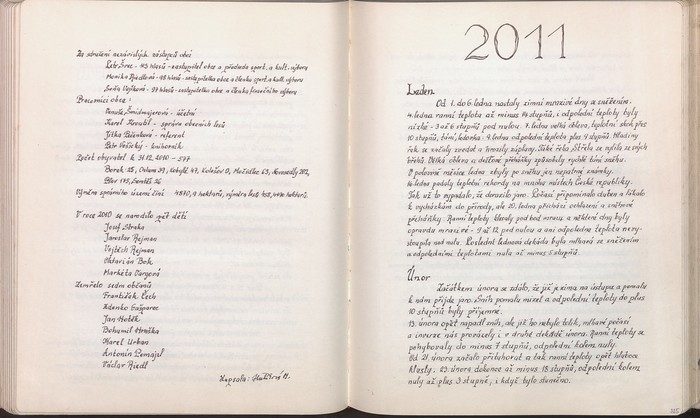 Za sdružení nezávislých zástupců obcí
Petr Švec - 113 hlasů - zastupitel obce a předseda sport. a kult. výboru
Monika Riedlová - 98 hlasů - zastupitelka obce a členka sport. a kult. výboru
Soňa Vojtková - 97 hlasů - zastupitelka obce a členka finančního výboru
Pracovníci obce:
Danuše Šmidmajerová - účetní
Karel Kroutil - správa obecních lesů
Jitka Bščenková - referent
Petr Vošický - knihovník
Počet obyvatel k 31.12.2010 - 577
Borek 25, Ostrov 39, Lobyků 47, Kolešov 0, Mačidlec 63, Novosedly 302,
Blov 175, Sentěš 26
Výměra správního území činí 4870,9 hektarů, výměra lesů hektarů.
V roce 2010 se narodilo pět dětí
Josef Straka
Jaroslav Rejman
Vojtěch Rejman
Oktavián Bok
Markéta Vargová
Zemřelo sedm občanů
František Čech
Zdenko Gašparec
Jan Hoték
Bohumil Hrnčka
Karel Urban
Antonín Lemajzl
Václav Riedl
Zapsala:
2011
Leden
Od 1. do 6. ledna nastaly zimní mrazivé dny a sněžením.
4. ledna ranní teplota až mínus 14 stupňů, i odpolední teploty byly
nízké - 3 až 6 stupňů pod nulou. 7. ledna velká obleva, teplotní skok přes
10 stupňů, téměř kalorka. 9. ledna odpolední teplota plus 9 stupňů. Hladiny
řek se začaly zvedat a hrozily záplavy. Také řeka Střela se vylila ze svých
břehů. Velká obleva a dešťové přeháňky způsobily rychlé tání sněhu.
V polovině měsíce ledna zbyly po sněhu jen nepatrné známky.
16. ledna padaly teplotní rekordy na mnoha místech České republiky.
Tak už to vypadalo, že dorazilo jaro. Počasí připomínalo duben a lákalo
k vycházkám do přírody, ale 20. ledna přichází ochlazení a sněhové
přeháňky. Ranní teploty klesaly pod bod mrazu a některé dny byly
opravdu mrazivé - 9 až 12 pod nulou a ani odpolední teplota nevy-
stoupila nad nulu. Poslední lednová dekáda byla mlhavá se sněžením
a odpoledními teplotami nula až mínus 5 stupňů.
Únor
Začátkem února se zdálo, že již je zima na ústupu a pomalu
k nám přijde jaro. Sníh pomalu mizel a odpolední teploty do plus
10 stupňů byly příjemné.
13. února opět napadl sníh, ale již ho nebylo tolik, mlhavé počasí
a inverze nás provázely i v druhé dekádě února. Ranní teploty se
pohybovaly do mínus 7 stupňů, odpolední kolem nuly.
Od 21. února začalo přituhovat a tak ranní teploty opět hluboce
klesly, 23. února dokonce až mínus 18 stupňů, odpolední kolem
nuly až plus 3 stupně, i když bylo slunečno.